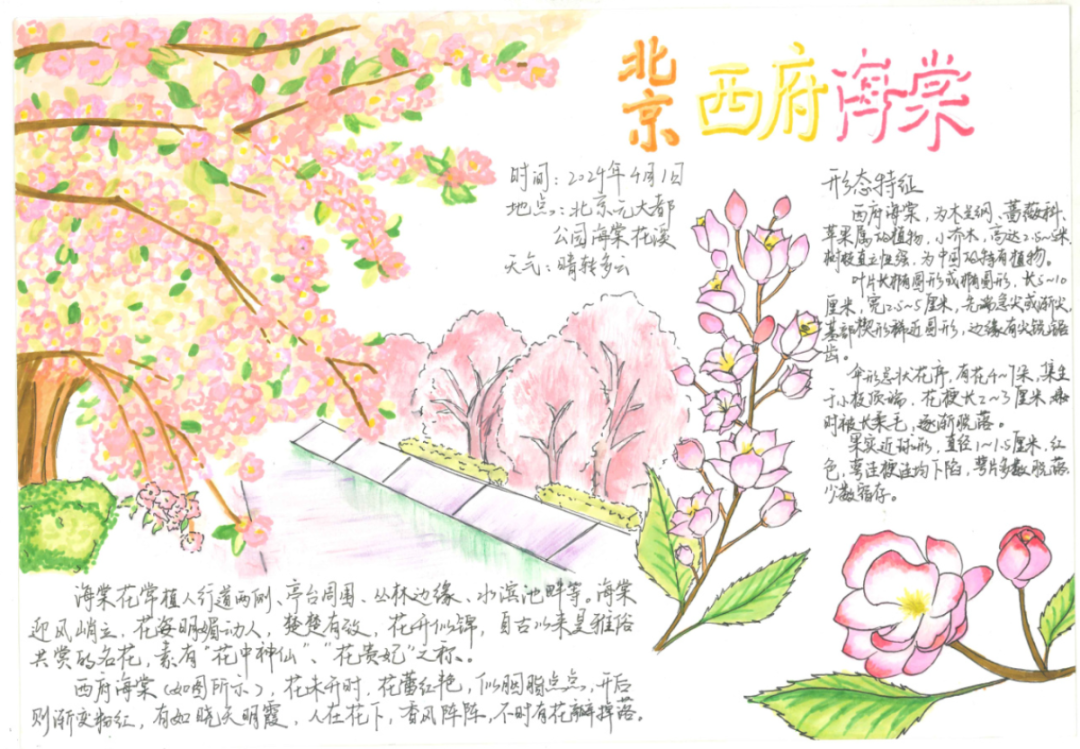 北京 西府海棠
时间：2024年4月1日
地点：北京元大都
公园海棠花溪
天气：晴转多云
形态特征
西府海棠，为木兰纲、蔷薇科、
苹果属的植物，小乔木，高达2.5~5米
树枝直立性强，为中国的特有植物。
叶片长椭圆形或椭圆形，长5~10
厘米，宽2.5~5厘米，先端急尖或渐尖
基部楔形稀近圆形，边缘有尖锐锯
齿。
伞形总状花序，有花4~7朵，集生
于小枝顶端，花梗长2~3厘米，
时被长柔毛，逐渐脱落。
果实近球形，直径1~1.5厘米，红
色，萼洼梗洼均下陷，萼片多数脱落
少数宿存。
海棠花常植人行道两侧、亭台周围、丛林边缘、水滨池畔等。海棠
迎风峭立，花每明媚动人，楚楚有致，花开似锦，自古以来是雅俗
共赏的名花，素有“花中神仙”、“花贵妃”之称。
西府海棠（如图所示），花未开时，花蕾红艳，似胭脂点点，开后
则渐变粉红，有如晓天明霞，人在花下，香风阵阵，不时有花瓣掉落。